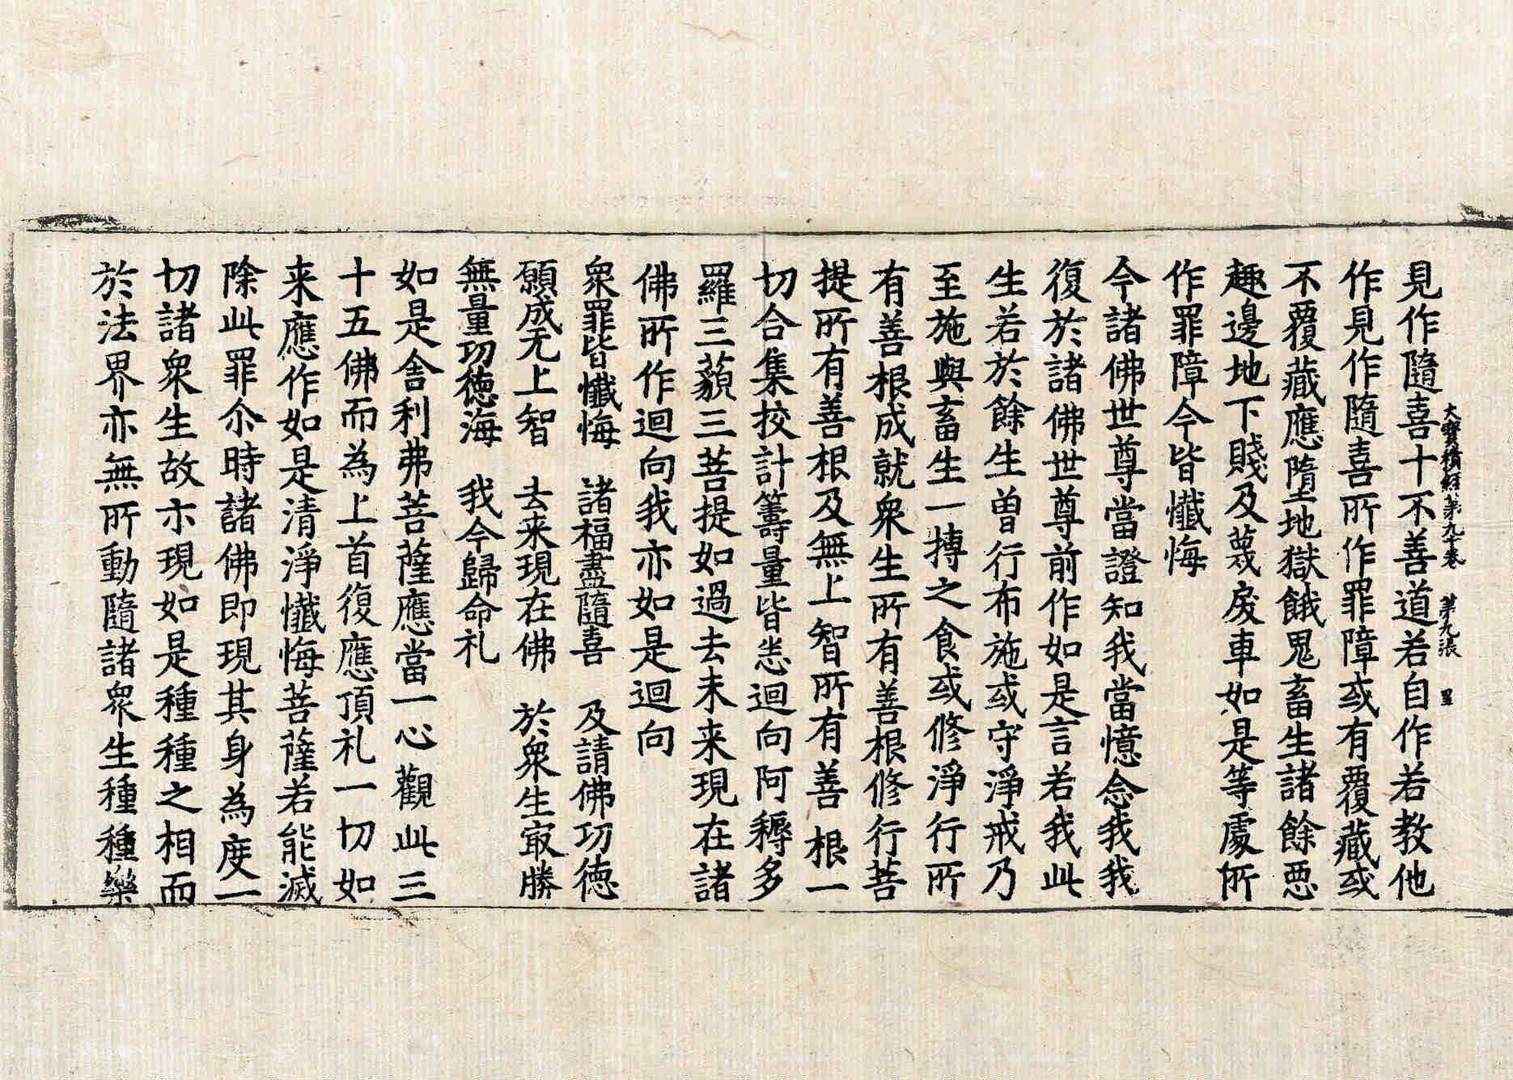 大寶積經第九十卷 第九張 星
見作隨喜十不善道若自作若教他
作見作隨喜所作罪障或有覆藏或
不覆藏應墮地獄餓鬼畜生諸餘惡
趣邊地下賤及蔑戾車如是等處所
作罪障今皆懺悔
今諸佛世尊當證知我當憶念我我
復於諸佛世尊前作如是言若我此
生若於餘生曾行布施或守淨戒乃
至施與畜生一摶之食或修淨行所
有善根成就衆生所有善根修行菩
提所有善根及無上智所有善根一
切合集挍計籌量皆悉迴向阿耨多
羅三藐三菩提如過去未来現在諸
佛所作迴向我亦如是迴向
衆罪皆懺悔 諸福盡隨喜 及請佛功德
願成无上智 去来現在佛 於衆生冣勝
無量功德海 我今歸命礼
如是舍利弗菩薩應當一心觀此三
十五佛而為上首復應頂礼一切如
来應作如是清淨懺悔菩薩若能滅
除此罪尒時諸佛即現其身為度一
切諸衆生故亦現如是種種之相而
於法界亦無所動隨諸衆生種種樂